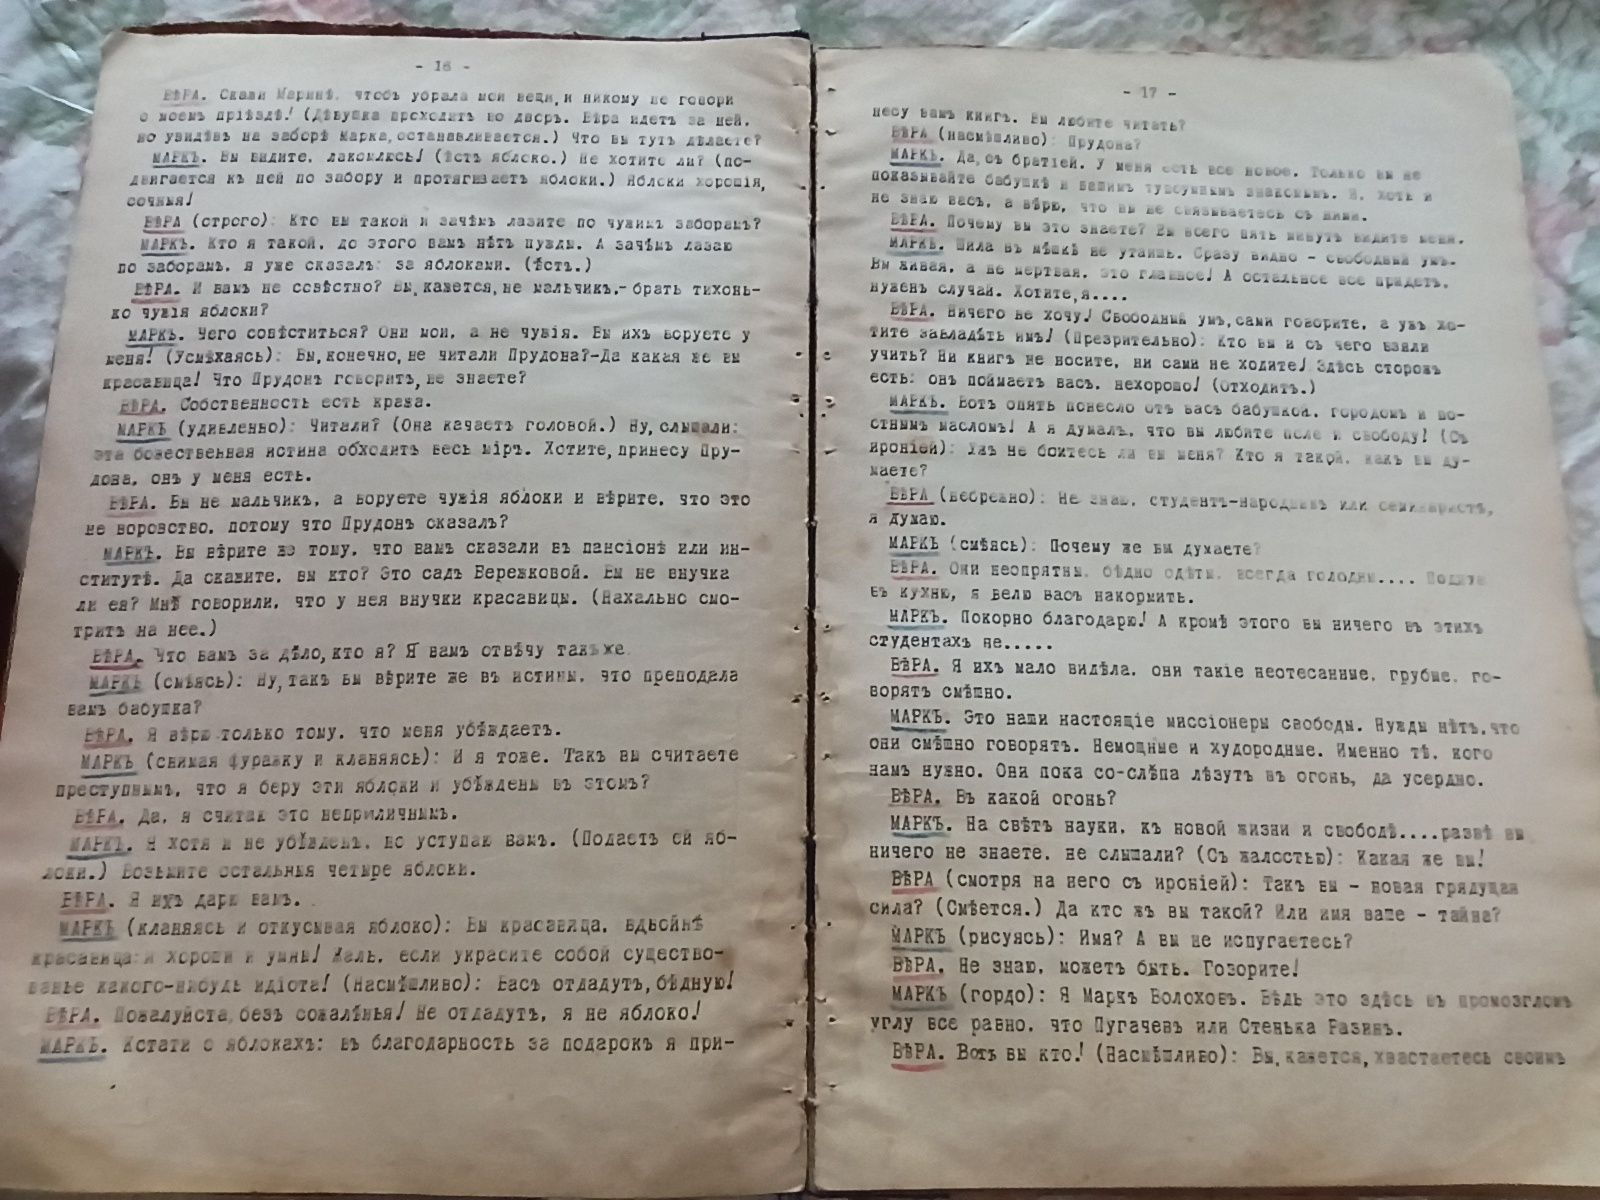 - 16 -
ВѢРА. Скажи Маринѣ, чтобъ убрала мои вещи, и никому не говори
о моемъ пріѣздѣ! (Дѣвушка проходитъ во дворъ. Вѣра идетъ за ней,
но увидѣвъ на заборѣ Марка, останавливается.) Что вы тутъ дѣлаете?
МАРКЪ. Вы видите, лакомлюсь! (Ѣстъ яблоко.) Не хотите ли? (по-
двигается къ ней по забору и протягиваетъ яблоки.) Яблоки хорошія,
сочныя!
ВѢРА (строго): Кто вы такой и зачѣмъ лазите по чужимъ заборамъ?
МАРКЪ. Кто я такой, до этого вамъ нѣтъ нужды. А зачѣмъ лазаю
по заборамъ, я уже сказалъ: за яблоками. (Ѣстъ.)
ВѢРА. И вамъ не совѣстно? Вы, кажется, не мальчикъ,- брать тихонь-
ко чужія яблоки?
МАРКЪ. Чего совѣститься? Они мои, а не чужія. Вы ихъ воруете у
меня! (Усмѣхаясь): Вы, конечно, не читали Прудона?-Да какая же вы
красавица! Что Прудонъ говоритъ, не знаете?
ВѢРА. Собственность есть кража.
МАРКЪ (удивленно): Читали? (Она качаетъ головой.) Ну, слышали:
эта божественная истина обходитъ весь міръ. Хотите, принесу Пру-
дона, онъ у меня есть.
ВѢРА. Вы не мальчикъ, а воруете чужія яблоки и вѣрите, что это
не воровство, потому что Прудонъ сказалъ?
МАРКЪ. Вы вѣрите же тому, что вамъ сказали въ пансіонѣ или ин-
ститутѣ. Да скажите, вы кто? Это садъ Бережковой. Вы не внучка
ли ея? Мнѣ говорили, что у нея внучки красавицы. (Нахально смо-
тритъ на нее.)
ВѢРА. Что вамъ за дѣло, кто я? Я вамъ отвѣчу такъ же.
МАРКЪ (смѣясь): Ну, такъ вы вѣрите же въ истины, что преподала
вамъ бабушка?
ВѢРА. Я вѣрю только тому, что меня убѣждаетъ.
МАРКЪ (снимая фуражку и кланяясь): И я тоже. Такъ вы считаете
преступнымъ, что я беру эти яблоки и убѣждены въ этомъ?
ВѢРА. Да, я считаю это неприличнымъ.
МАРКЪ. Я хотя и не убѣжденъ, но уступаю вамъ. (Подаетъ ей яб-
локи.) Возьмите остальныя четыре яблоки.
ВѢРА. Я ихъ дарю вамъ.
МАРКЪ (кланяясь и откусывая яблоко): Вы красавица, вдвойнѣ
красавица: и хороши и умны! Жаль, если украсите собой существо-
ванье какого-нибудь идіота! (Насмѣшливо): Васъ отдадутъ, бѣдную!
ВѢРА. Пожалуйста, безъ сожалѣнья! Не отдадутъ, я не яблоко!
МАРКЪ. Кстати о яблокахъ: въ благодарность за подарокъ я при-
- 17 -
несу вамъ книгъ. Вы любите читать?
ВѢРА (насмѣшливо): Прудона?
МАРКЪ. Да, съ братіей, у меня есть все новое. Только вы не
показывайте бабушкѣ и вашимъ тупоумнымъ знакомымъ. Я, хоть и
не знаю васъ, а вѣрю, что вы не связываетесь съ ними.
ВѢРА. Почему вы это знаете? Вы всего пять минутъ видите меня.
МАРКЪ. Шила въ мѣшкѣ не утаишь. Сразу видно - свободный умъ.
Вы живая, а не мертвая, это главное! А остальное все придетъ,
нуженъ случай. Хотите, я....
ВѢРА. Ничего не хочу! Свободный умъ, сами говорите, а ужъ хо-
тите завладѣть имъ! (Презрительно): Кто вы и съ чего взяли
учить? Ни книгъ не носите, ни сами не ходите! Здѣсь сторожъ
есть: онъ поймаетъ васъ, нехорошо! (Отходитъ.)
МАРКЪ. Вотъ опять понесло отъ васъ бабушкой, городомъ и по-
стнымъ масломъ! А я думалъ, что вы любите поле и свободу! (Съ
ироніей): Ужъ не боитесь ли вы меня? Кто я такой, какъ вы ду-
маете?
ВѢРА (небрежно): Не знаю, студентъ-народникъ или семинаристъ,
я думаю.
МАРКЪ (смѣясь): Почему же вы думаете?
ВѢРА. Они неопрятны, бѣдно одѣты, всегда голодны.... Подите
въ кухню, я велю васъ накормить.
МАРКЪ. Покорно благодарю! А кромѣ этого вы ничего въ этихъ
студентахъ не.....
ВѢРА. Я ихъ мало видѣла, они такіе неотесанные, грубые, го-
ворятъ смѣшно.
МАРКЪ. Это наши настоящіе миссіонеры свободы. Нужды нѣтъ, что
они смѣшно говорятъ. Немощные и худородные. Именно тѣ, кого
намъ нужно. Они пока со-слѣпа лѣзутъ въ огонь, да усердно.
ВѢРА. Въ какой огонь?
МАРКЪ. На свѣтъ науки, къ новой жизни и свободѣ....развѣ вы
ничего не знаете, не слышали? (Съ жалостью): Какая же вы!
ВѢРА (смотря на него съ ироніей): Такъ вы - новая грядущая
сила? (Смѣется.) Да кто жъ вы такой? Или имя ваше - тайна?
МАРКЪ (рисуясь): Имя? А вы не испугаетесь?
ВѢРА. Не знаю, можетъ быть. Говорите!
МАРКЪ (гордо): Я Маркъ Волоховъ. Вѣдь это здѣсь въ промозгломъ
углу все равно, что Пугачевъ или Стенька Разинъ.
ВѢРА. Вотъ вы кто! (Насмѣшливо): Вы, кажется, хвастаетесь своимъ